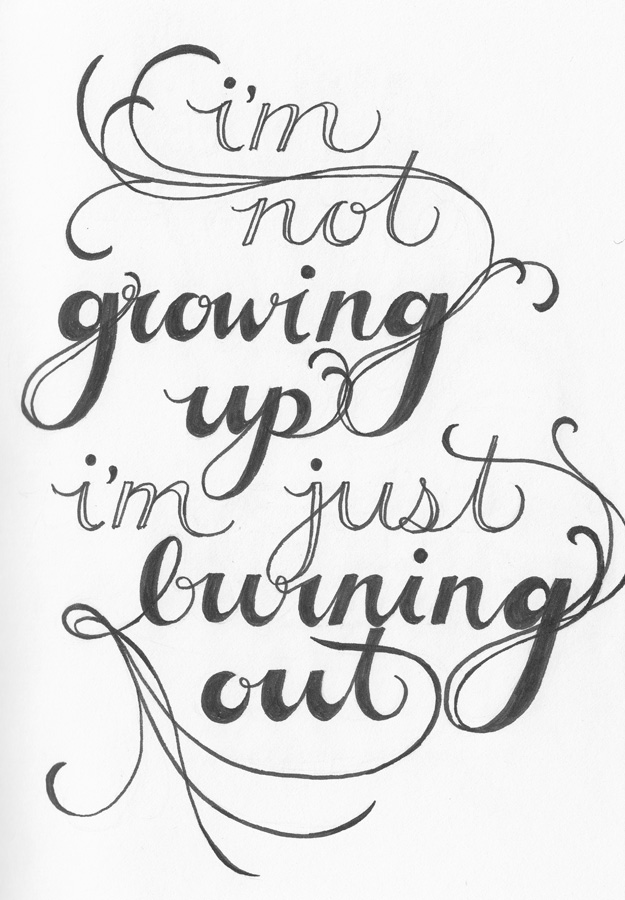 i'm
not
growing
up
i'm just
burning
out